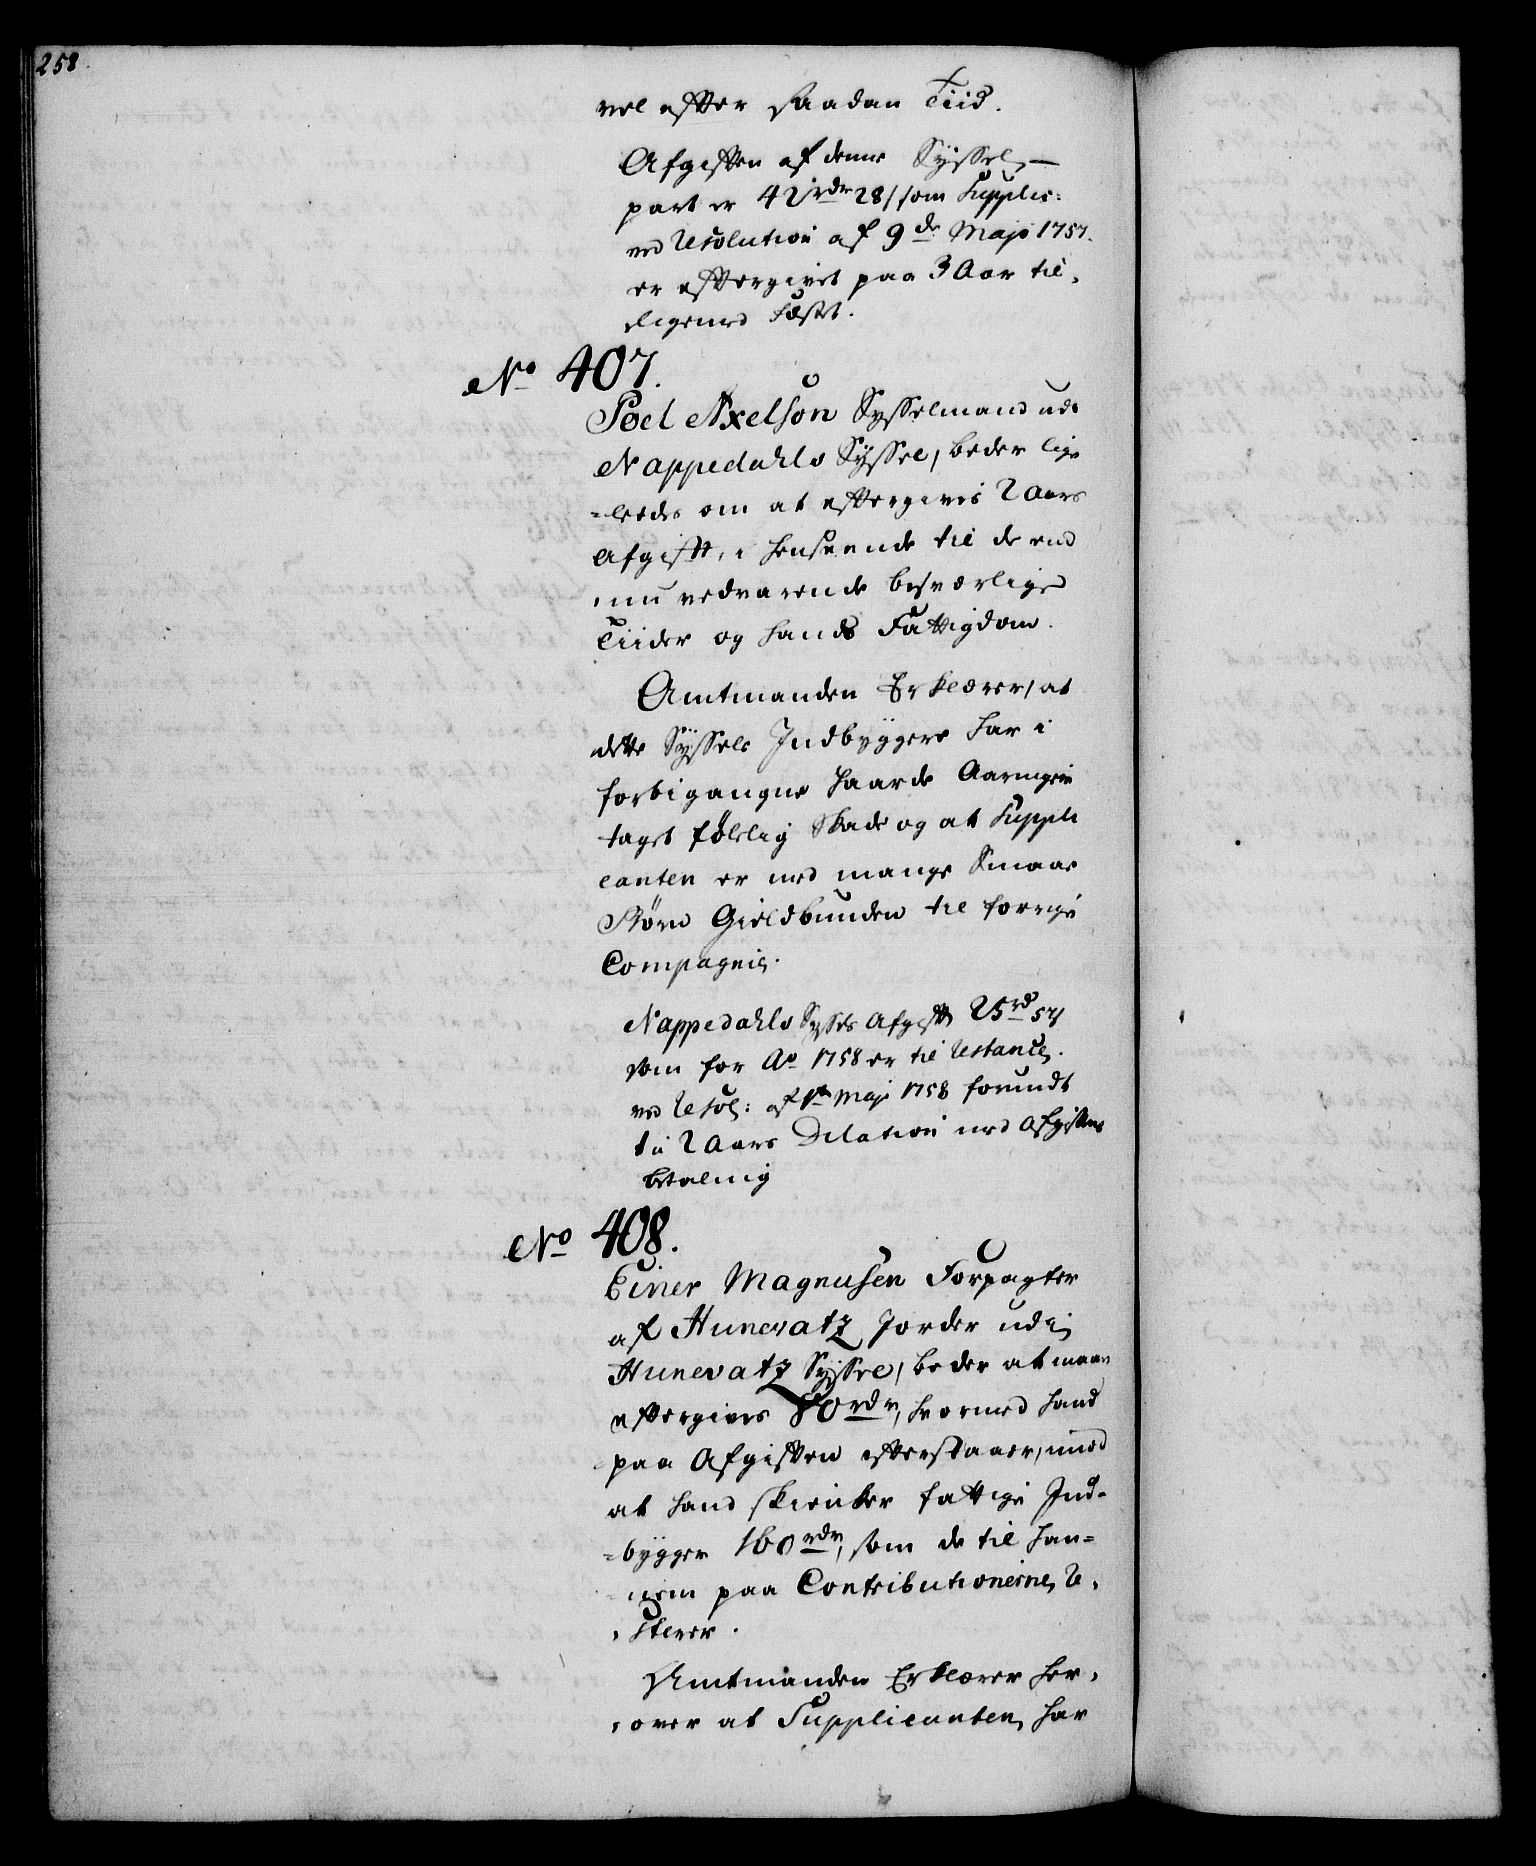 258.
vel efter saadan Tiid.
Afgiften af denne Syssel,
part er 42 rdr 28 s som Supplic:
ved Resolution af 9de Maji 1757.
er eftergivet paa 3 Aar til,
ligemed Fæstet.
No 407.
Poel Axelsøn Sysselmand udi
Nappedahls Syssel, beder lige
=leedes om at eftergives 2 Aars
Afgift, i henseende til de end
,nu vedvarende besværlige
Tiider og hands Fattigdom.
Amtmanden Erklærer, at
dette Syssels Indbyggere har i
forbigangne haarde Aaringer
taget følelig Skade og at Suppli
canten er med mange Smaae
Børn Gieldbunden til forrige
Compagnie.
Nappedahls Syssels Afgift 25 rd 57 s
som for Ao 1758 er til Restance,
ved Resol: af 1te Maji 1758 forundt
til 2 Aars Dilation med Afgiftens
betaling
No 408.
Einer Magnusen Forpagter
af Hunevatz Jorder udi
Hunevatz Syssel, beder at maae
eftergives 80 rdr, hvormed hand
paa Afgiften efterstaaer, imod
at hand skienker fattige Ind-
=bygger 160 rdr, som de til han=
=nem paa Contributionerne Re,
,sterer.
Amtmanden Erklærer her,
,over at Supplicanten har